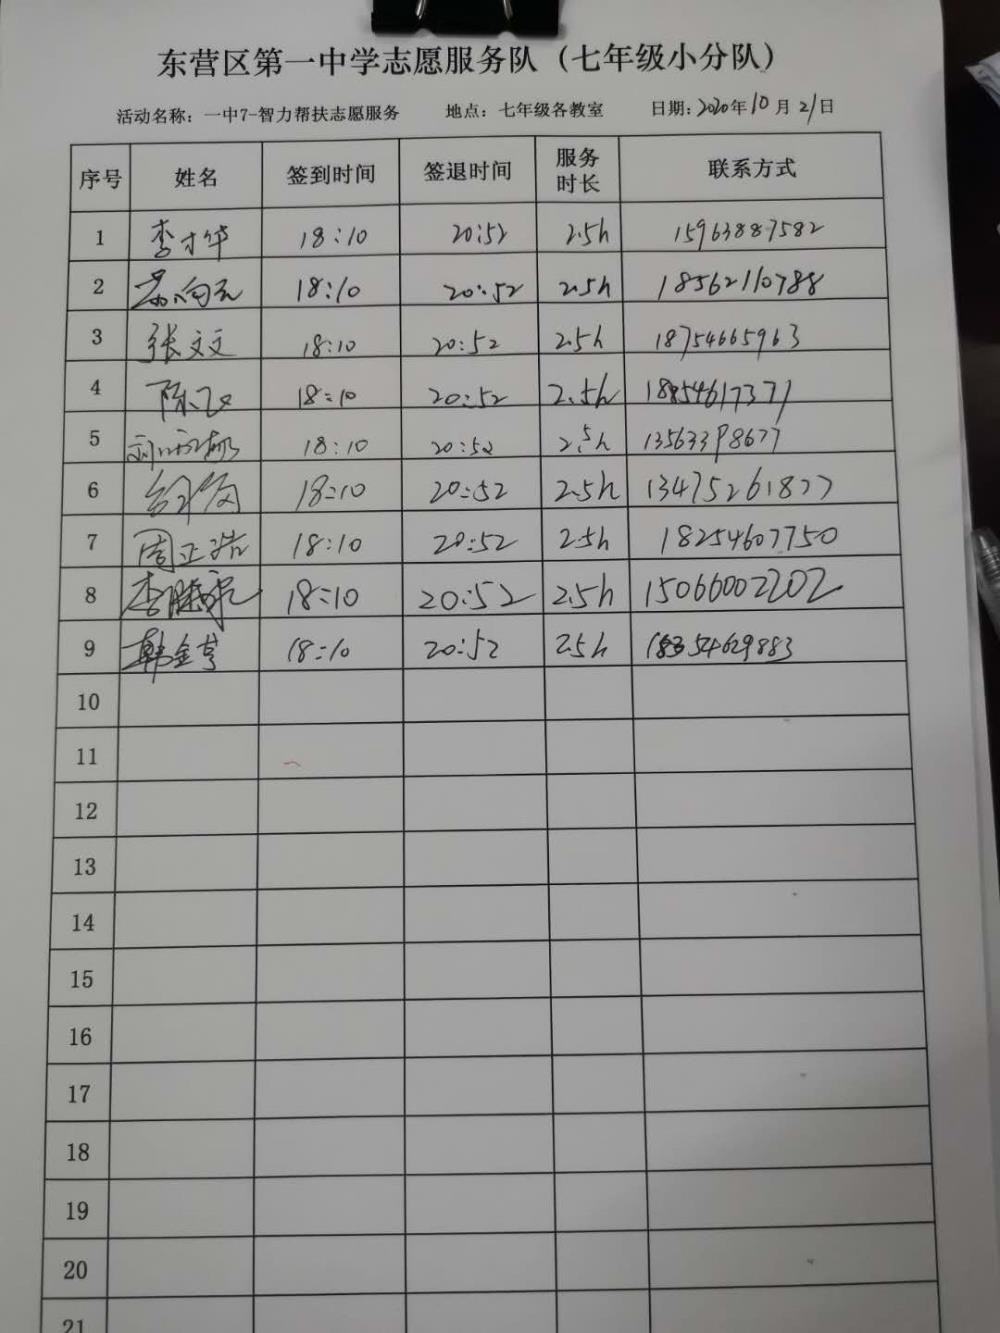 东营区第一中学志愿服务队（七年级小分队）
活动名称：一中7-智力帮扶志愿服务 地点：七年级各教室 日期：2020年10月21日
序号 姓名 签到时间 签退时间 服务时长 联系方式
1 李才华 18:10 20:52 2.5h 15963887582
2 18:10 20:52 2.5h 18562110788
3 张文文 18:10 20:52 2.5h 18754665963
4 陈飞 18:10 20:52 2.5h 18854617371
5 18:10 20:52 2.5h 13563398677
6 18:10 20:52 2.5h 13475261877
7 周正浩 18:10 20:52 2.5h 18254607750
8 18:10 20:52 2.5h 15066002202
9 韩金亭 18:10 20:52 2.5h
10
11
12
13
14
15
16
17
18
19
20
21